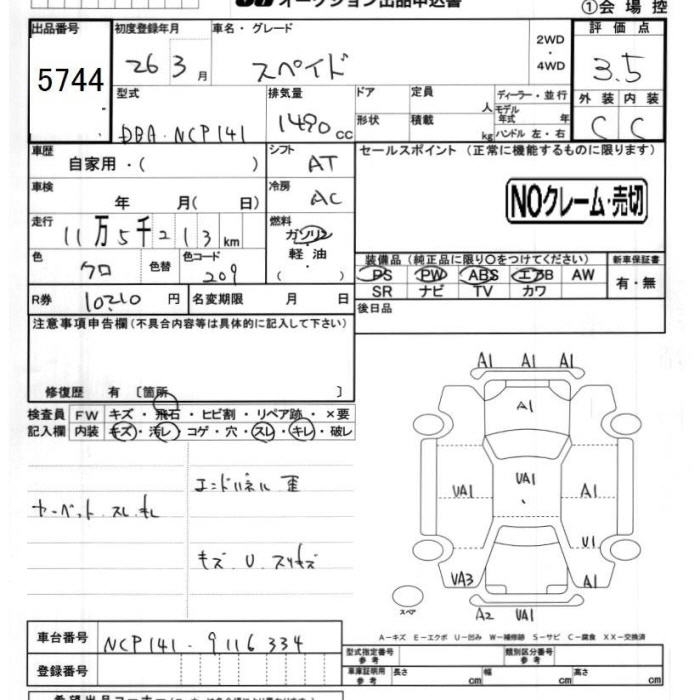 オークション出品申込書
①会場控
出品番号 初度登録年月 車名・グレード 2WD・4WD 評価点
5744 26 3月 スペイド 3.5
型式 排気量 ドア 定員 人 ディーラー・並行 外装 内装
DBA・NCP141 1490cc 形状 積載 kg モデル年式 年 ハンドル 左・右 C C
車歴 自家用・( ) シフト AT セールスポイント (正常に機能するものに限ります)
車検 年 月( 日) 冷房 AC NOクレーム・売切
走行 11万5千213km 燃料 ガソリン 軽油 ( )
装備品 (純正品に限り○をつけてください) 新車保証書
PS PW ABS エアB AW 有・無
色 クロ 色替 色コード 209 SR ナビ TV カワ
R券 10210円 名変期限 月 日 後日品
注意事項申告欄(不具合内容等は具体的に記入して下さい)
修復歴 有 〔箇所 〕
検査員記入欄 FW キズ・飛石・ヒビ割・リペア跡・×要
内装 キズ・汚レ・コゲ・穴・スレ・キレ・破レ
エンドパネル 歪
カーペット スレ キレ
キズ U スリキズ
A1 A1 A1
A1
UA1 UA1 A1
U1
UA3 A1
スペア A2 UA1
A-キズ E-エクボ U-凹み W-補修跡 S-サビ C-腐食 XX-交換済
車台番号 NCP141-9116334
型式指定番号 参考 類別区分番号 参考
登録番号 車庫証明用 参考 長さ cm 幅 cm 高さ cm